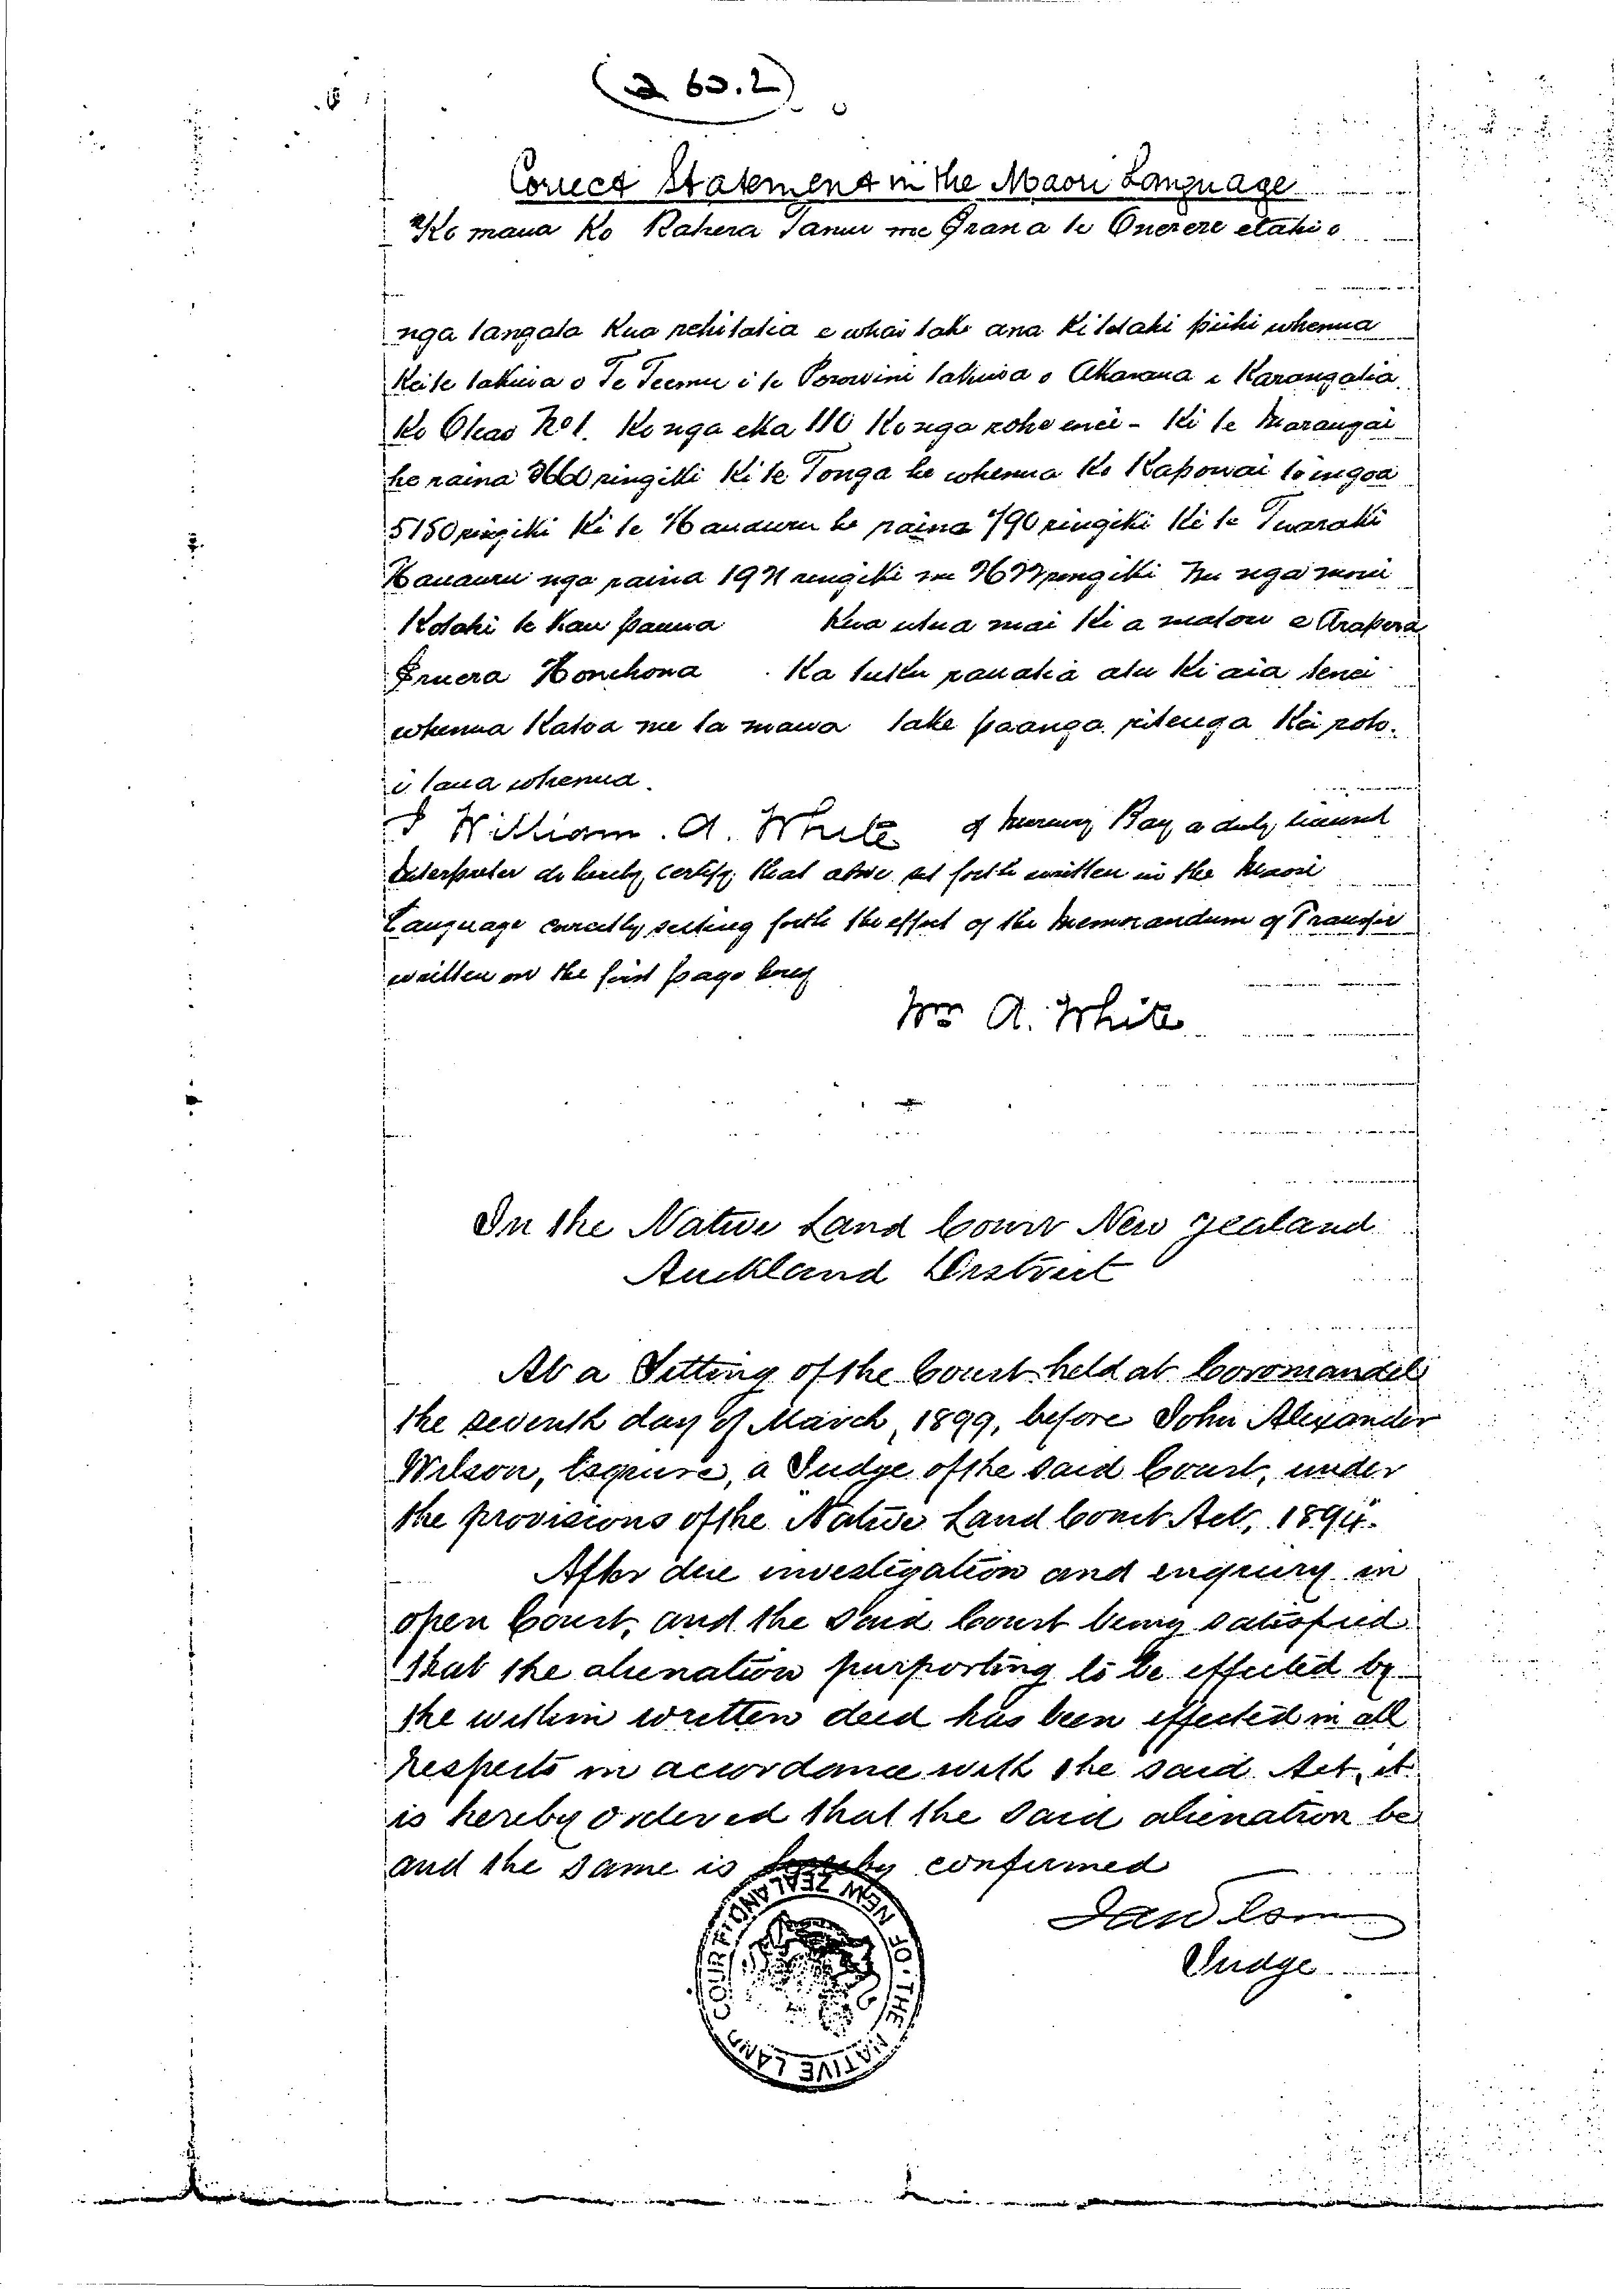 (a 60.2)
Correct Statement in the Maori Language
"Ko maua Ko Rahera Tanui me Grana te Onerere etahi o
nga tangata Kua rehitatia e whai take ana Ki tetahi piihi whenua
Kei te takiwa o Te Teemu i te Porowini takiwa o Akarana e Karangatia
Ko Okao No 1. Ko nga eka 110 Ko nga rohe enei - Ki te Marangai
he raina ringiki Ki te Tonga he whenua Ko Kapowai te ingoa
5150 ringiki Ki te Hauauru he raina 790 ringiki Ki te Tuaraki
Hauauru nga raina ringiki me ringiki Mu nga moni
Kotahi te Kau pauna Kua utua mai Ki a matou e Arapera
Eruera Honehona Ka tuku rauatia atu Ki aia tenei
whenua Katoa me ta maua take paanga ritenga Kei roto
i taua whenua.
I William. A. White of Mercury Bay a duly licensed
Interpreter do hereby certify that above set forth written in the Maori
Language correctly setting forth the effect of the Memorandum of Transfer
written on the first page hereof
Wm A. White
In the Native Land Court New Zealand
Auckland District
At a Sitting of the Court held at Coromandel
the seventh day of March, 1899, before John Alexander
Wilson, Esquire, a Judge of the said Court, under
the provisions of the "Native Land Court Act, 1894".
After due investigation and enquiry in
open Court, and the said Court being satisfied
that the alienation purporting to be effected by
the within written deed has been effected in all
respects in accordance with the said Act, it
is hereby ordered that the said alienation be
and the same is hereby confirmed
JAWilson
Judge
OF THE NATIVE LAND COURT NEW ZEALAND